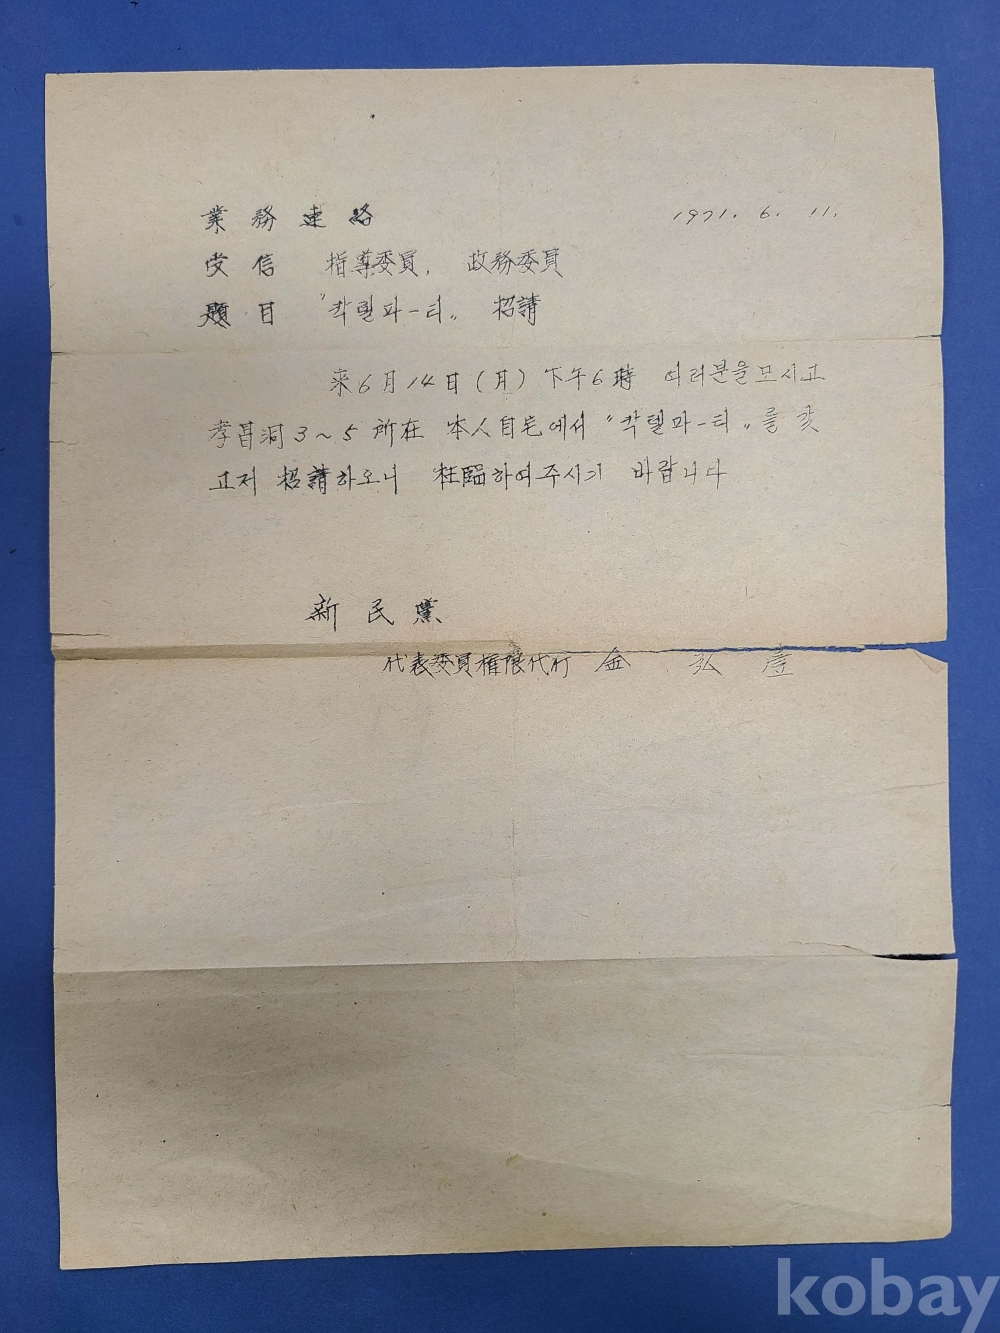 業務連絡 1971. 6. 11.
受信 指導委員, 政務委員
題目 "칵텔파-티" 招請
来6月14日(月) 下午6時 여러분을모시고
孝昌洞3~5 所在 本人自宅에서 "칵텔파-티"를 갖
고저 招請하오니 枉臨하여주시기 바랍니다
新民黨
代表委員權限代行 金 弘壹
kobay